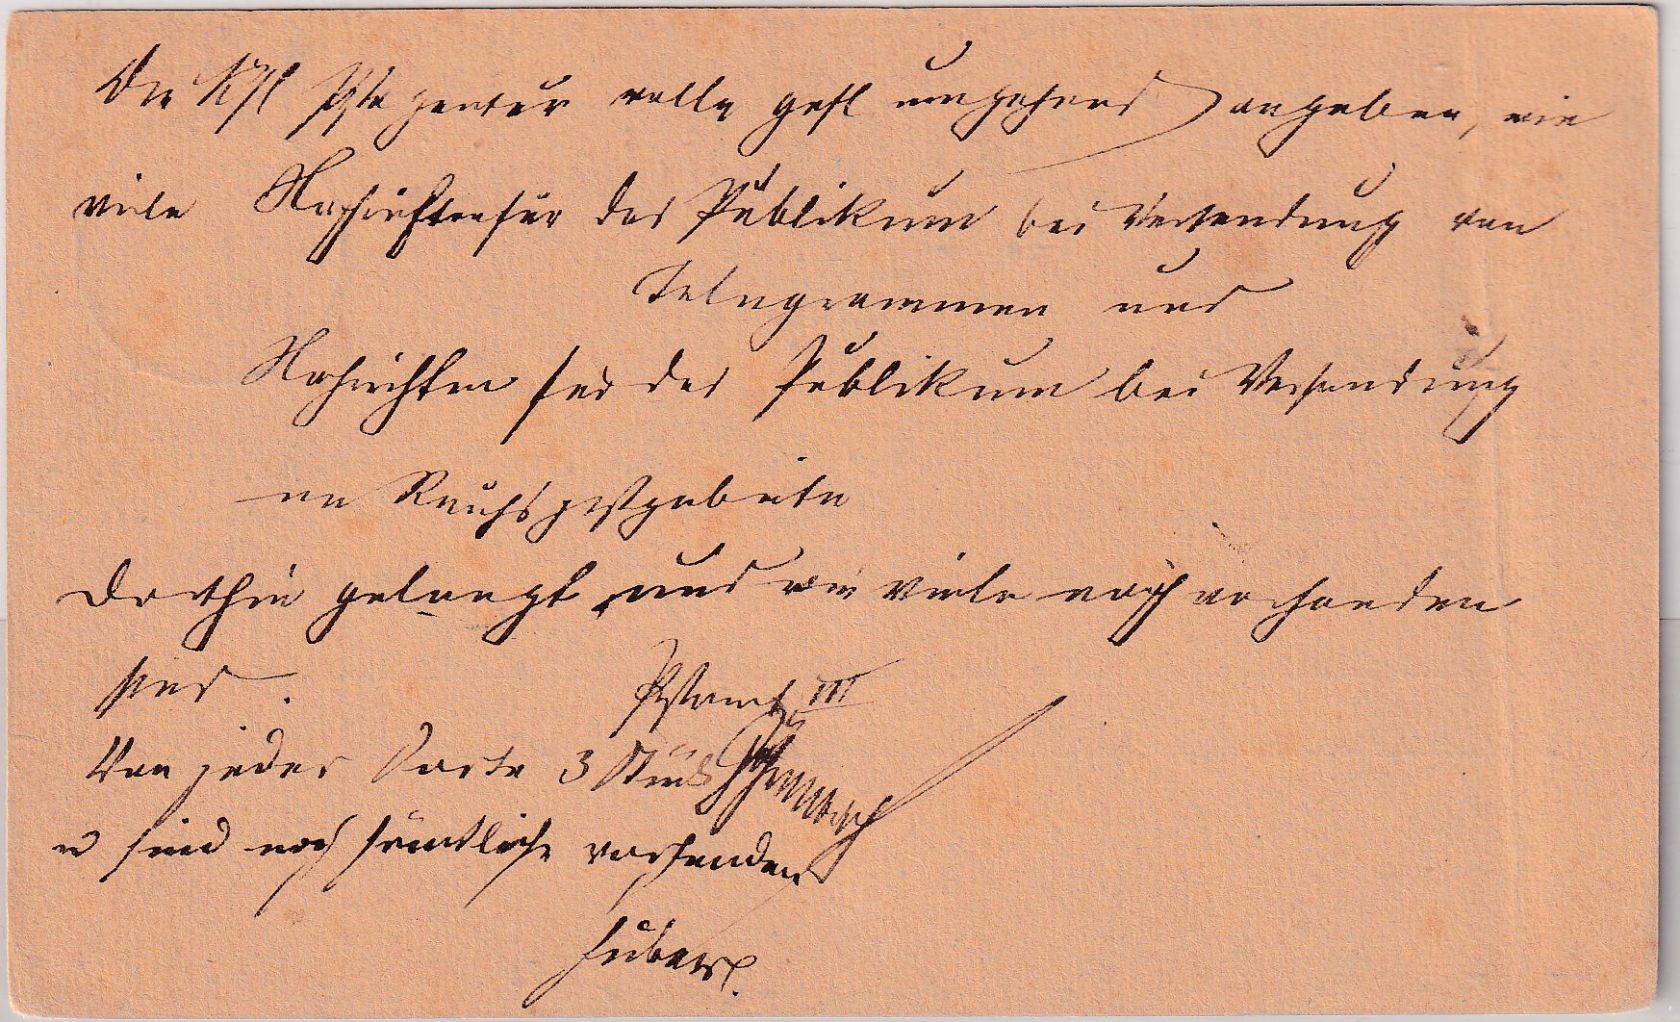 Die Kgl Postagentur wolle gefl umgehend angeben, wie
viele Nachrichten für das Publikum bei Versendung von
Telegrammen und
Nachrichten für das Publikum bei Versendung
im Reichspostgebiete
dorthin gelangt und wie viele noch vorhanden
sind.
Postamt III
Von jeder Sorte 3 Stück
u sind noch sämtliche vorhanden
Huber